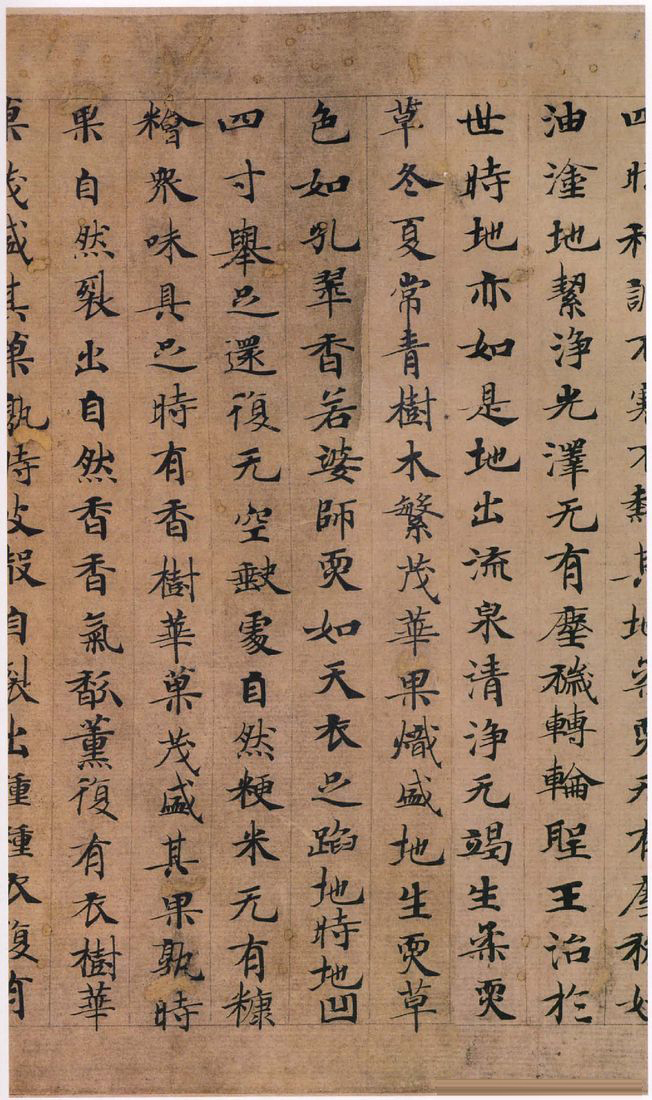 四時和調不寒不熱其地柔耎无有塵穢如
油塗地絜淨光澤无有塵穢轉輪聖王治於
世時地亦如是地出流泉清淨无竭生柔耎
草冬夏常青樹木繁茂華果熾盛地生耎草
色如孔翠香若婆師耎如天衣足蹈地時地凹
四寸舉足還復无空缺處自然粳米无有糠
糩眾味具足時有香樹華菓茂盛其果孰時
果自然裂出自然香香氣馥薰復有衣樹華
菓茂盛其菓孰時皮殼自裂出種種衣復有